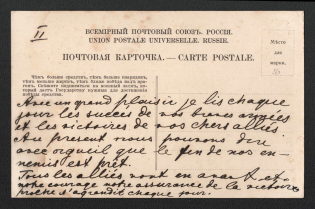 II
ВСЕМІРНЫЙ ПОЧТОВЫЙ СОЮЗЪ. РОССІЯ.
UNION POSTALE UNIVERSELLE. RUSSIE.
ПОЧТОВАЯ КАРТОЧКА. — CARTE POSTALE.
Мѣсто
для
марки.
Чѣмъ больше средствъ, тѣмъ больше снарядовъ,
чѣмъ больше
Avec un grand plaisir je lis chaque
jour les succès de nos braves armées
et les victoires de nos chers alliés
Au présent nous pouvons dire
avec orgueil que la fin de nos en-
nemis est prêt.
Tous les alliés vont en avant et
notre courage notre assurance de la victoire
proche s'agrandit chaque jour.